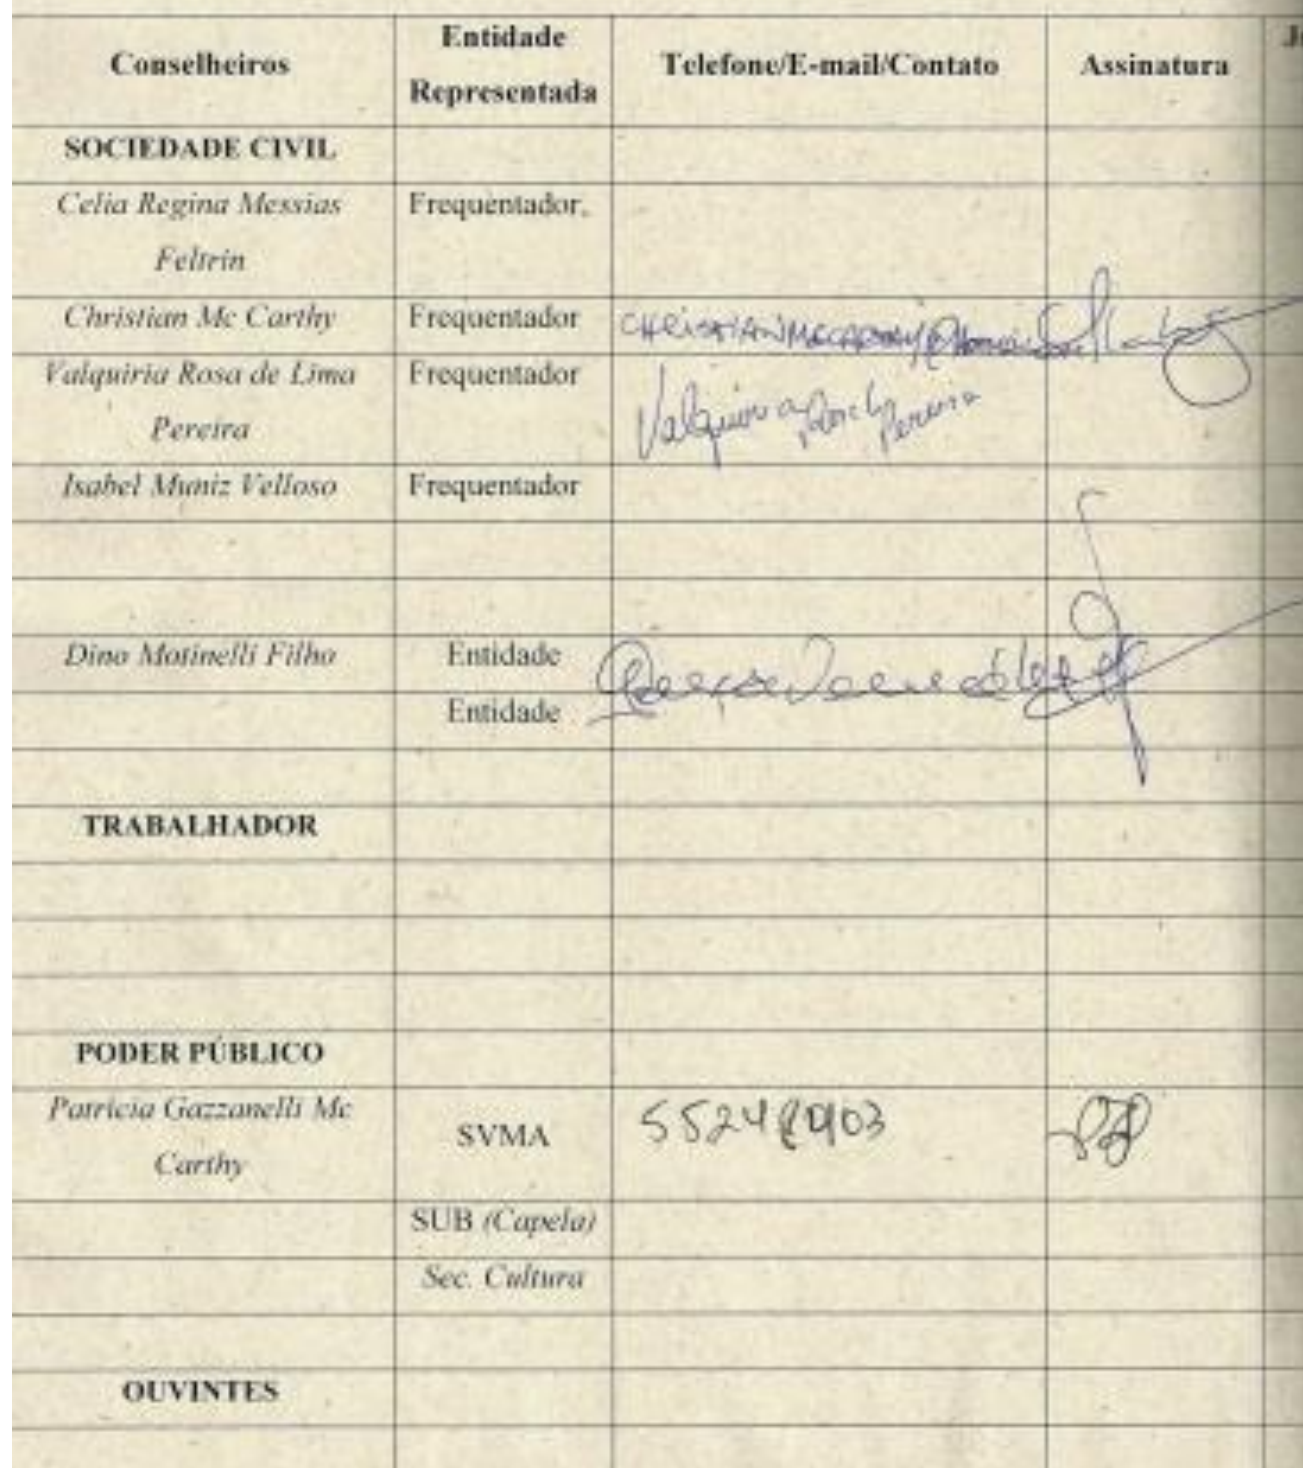 Conselheiros
Entidade
Representada
Telefone/E-mail/Contato
Assinatura
SOCIEDADE CIVIL
Celia Regina Messias
Feltrin
Frequentador
Christian Mc Carthy
Frequentador
Valquiria Rosa de Lima
Pereira
Frequentador
Valquiria
Pereira
Isabel Muniz Velloso
Frequentador
Dino Motinelli Filho
Entidade
Entidade
TRABALHADOR
PODER PÚBLICO
Patricia Gazzanelli Mc
Carthy
SVMA
SUB (Capela)
Sec. Cultura
OUVINTES